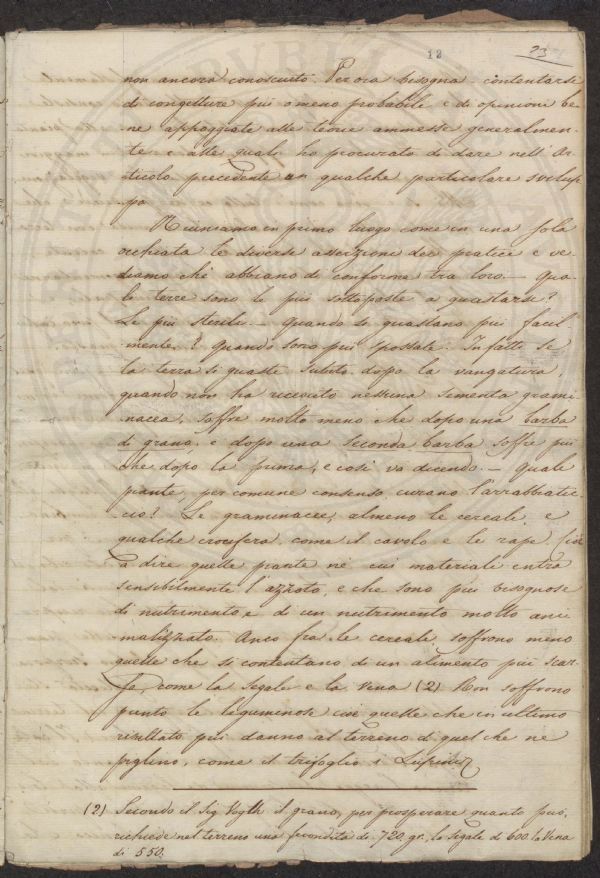 12
23
non ancora conosciuto. Per ora bisogna contentarsi
di congetture più o meno probabili e di opinioni be-
ne appoggiate alle teorie ammesse generalmen-
te e alle quali ho procurato di dare nell' Ar-
ticolo precedente un qualche particolare svilup-
po.
Riuniamo in primo luogo come in una sola
occhiata le diverse asserzioni dei pratici e ve-
diamo che abbiano di conforme tra loro. — Qua-
li terre sono le più sottoposte a guastarsi?
Le più sterili. — Quando si guastano più facil-
mente? Quando sono più spossate. Infatti se
la terra si guasta subito dopo la vangatura,
quando non ha ricevuto nessuna sementa grami-
nacea, soffre molto meno che dopo una barba
di grano, e dopo una seconda barba soffre più
che dopo la prima, e così va dicendo. — Quali
piante, per comune consenso, curano l'arrabbiatic-
cio? Le graminacee, almeno le cereali e
qualche crocifera, come il cavolo e le rape, cioè
a dire quelle piante nei cui materiali entra
sensibilmente l'azzoto, e che sono più bisognose
di nutrimento, e di un nutrimento molto ani-
malizzato. Anco fra le cereali soffrono meno
quelle che si contentano di un alimento più scar-
so, come la Segale e la Vena (2) Non soffrono
punto le leguminose cioè quelle che in ultimo
resultato più danno al terreno di quel che ne
piglino, come il trifoglio i Lupini
(2) Secondo il Sig Voght il grano, per prosperare quanto può,
richiede nel terreno una fecondità di 720 gr, la segale di 600 la Vena
di 550.